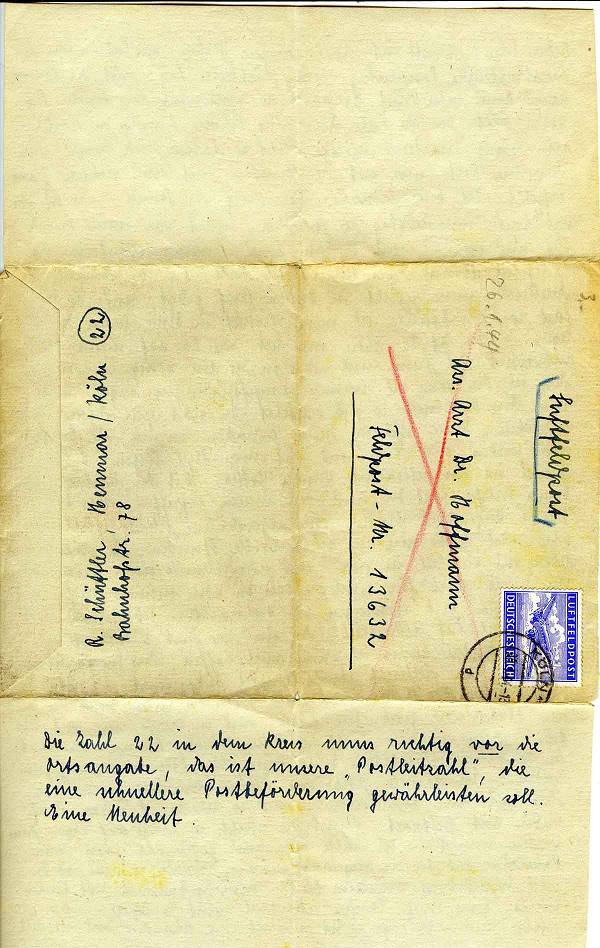 3.-
26.1.44
Luftfeldpost
Ass. Arzt Dr. Hoffmann
Feldpost-Nr. 13632
LUFTFELDPOST
DEUTSCHES REICH
KÖLN
R. Schüttler, Heumar / Köln (22)
Bahnhofstr. 78
Die Zahl 22 in dem Kreis muss richtig vor die
Ortsangabe, das ist unsere „Postleitzahl", die
eine schnellere Postbeförderung gewährleisten soll.
Eine Neuheit.